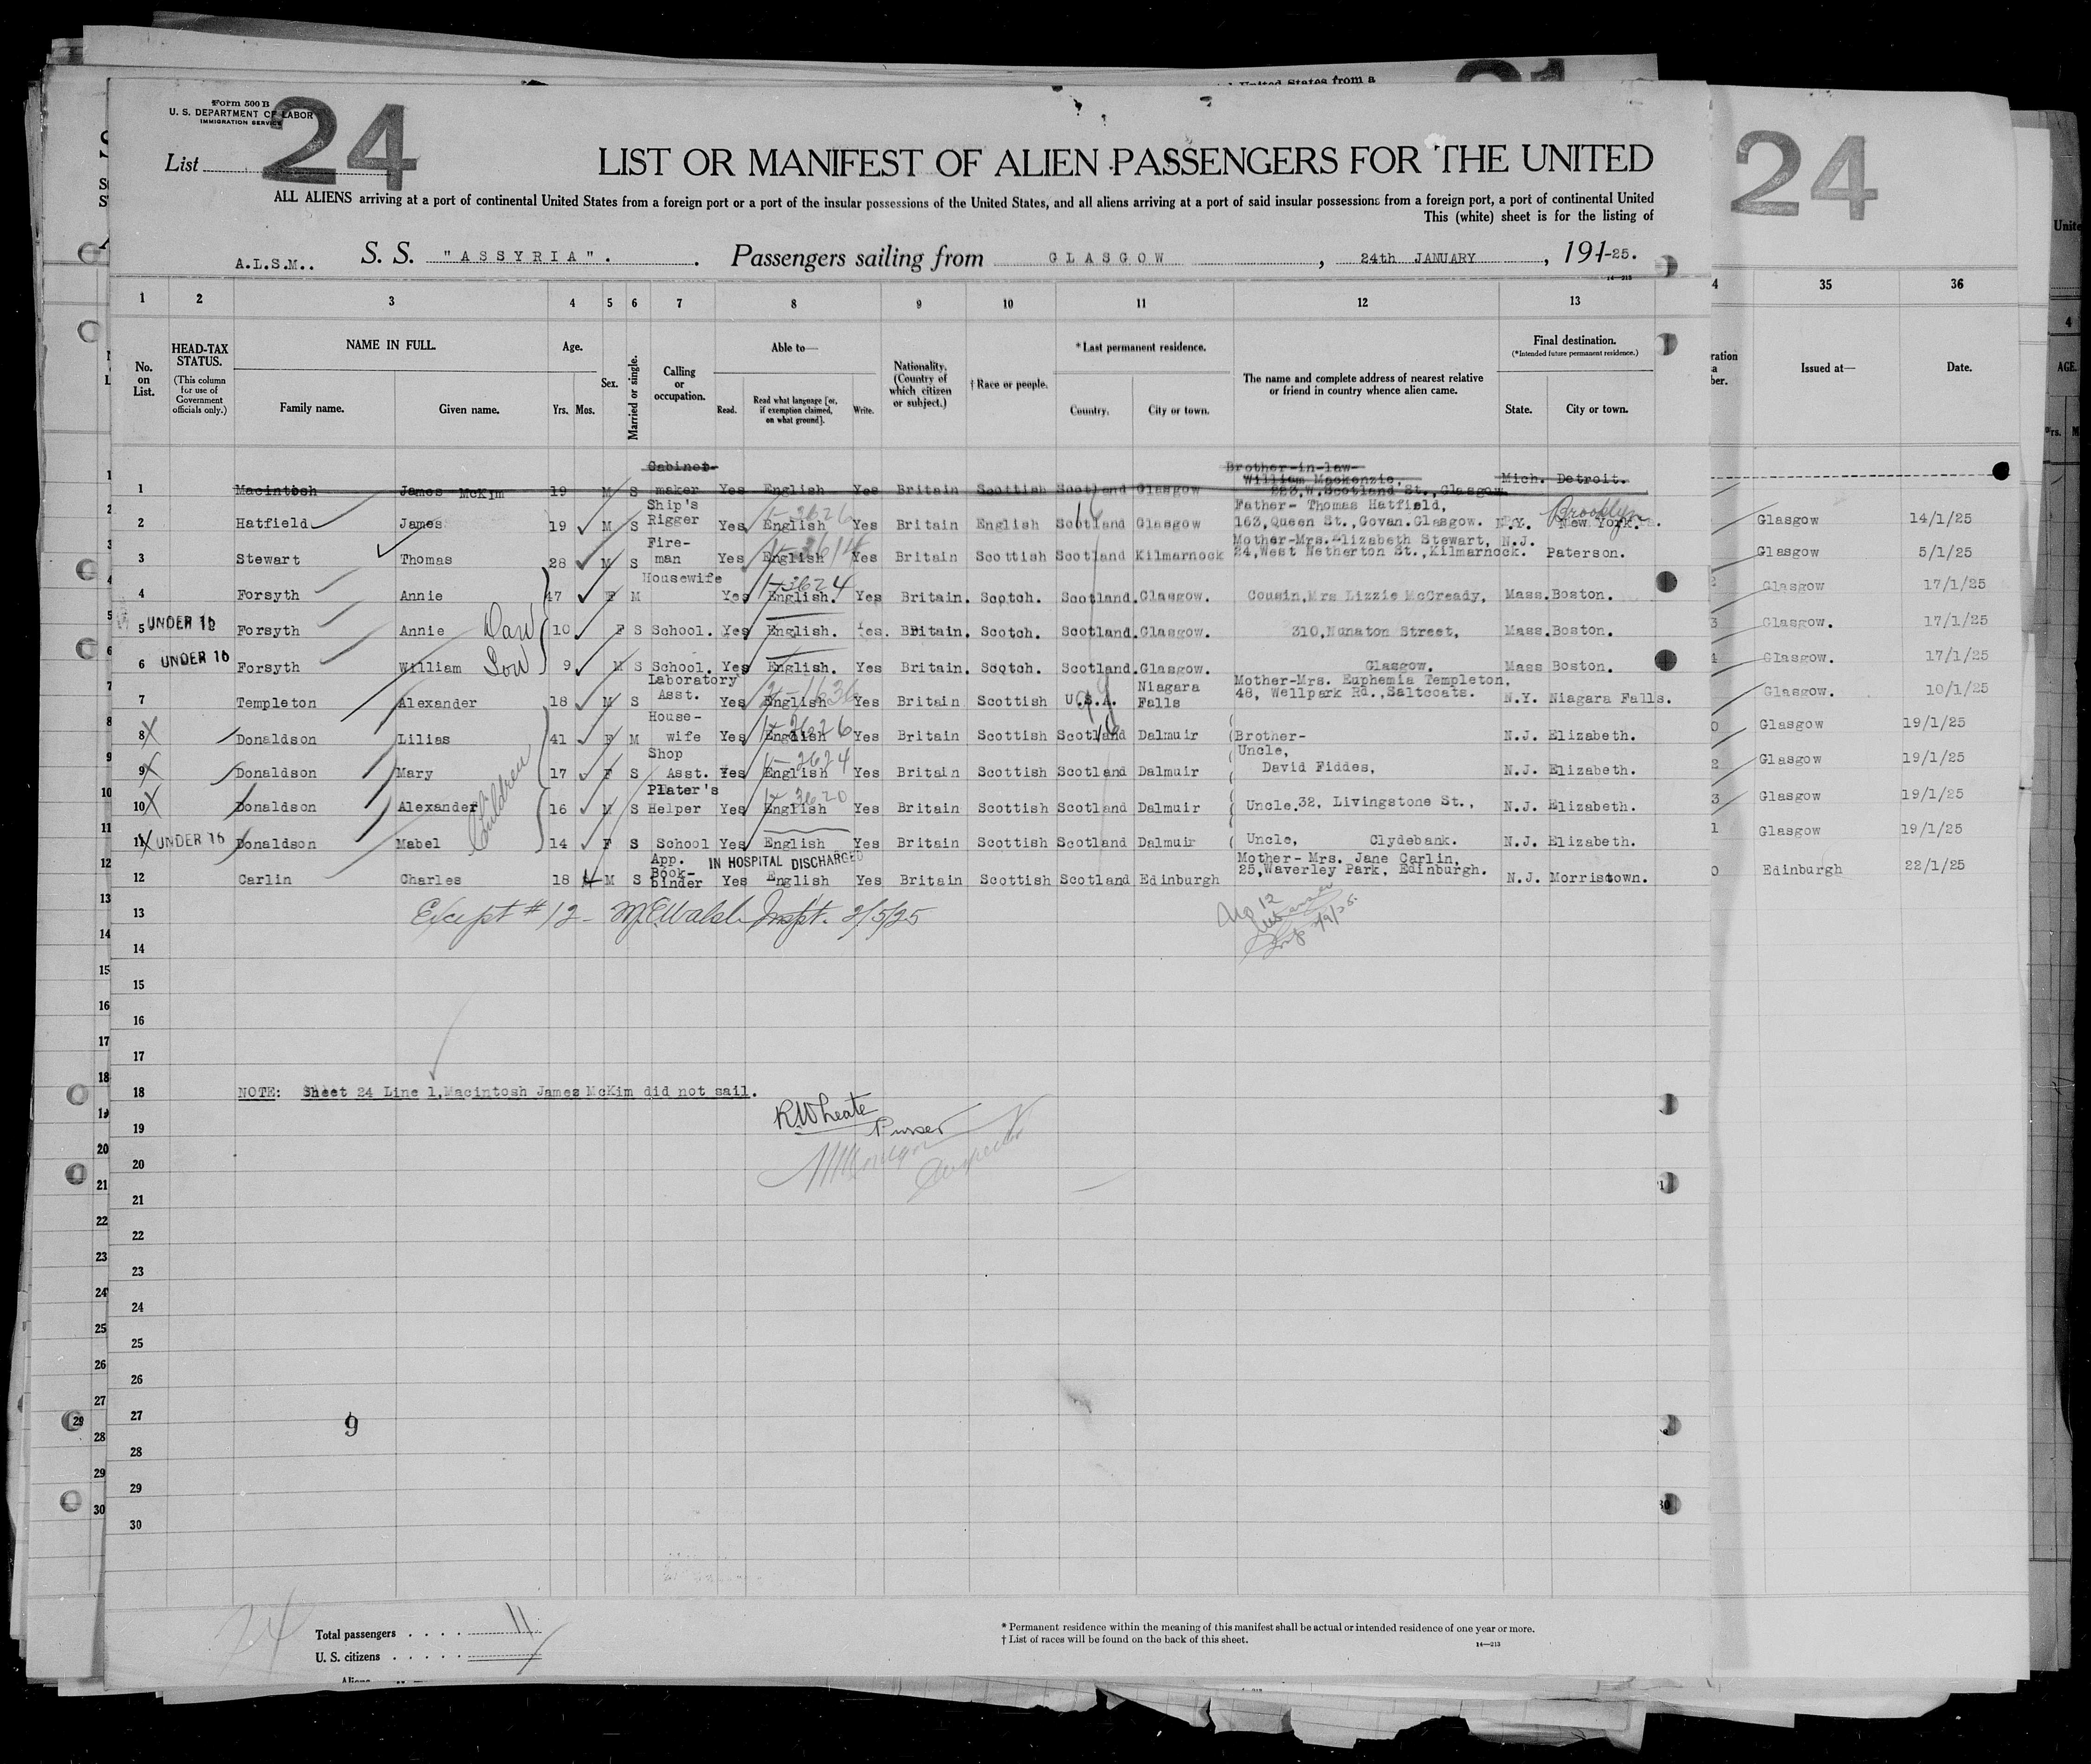 Form 500 B
U. S. DEPARTMENT OF LABOR
IMMIGRATION SERVICE
List 24
24
United States from a
LIST OR MANIFEST OF ALIEN PASSENGERS FOR THE UNITED
ALL ALIENS arriving at a port of continental United States from a foreign port or a port of the insular possessions of the United States, and all aliens arriving at a port of said insular possessions from a foreign port, a port of continental United
This (white) sheet is for the listing of
A.L.S.M.. S. S. "ASSYRIA". Passengers sailing from GLASGOW, 24th JANUARY, 191-25.
14—213
1 2 3 4 5 6 7 8 9 10 11 12 13 35 36
No. on List.
HEAD-TAX STATUS.
(This column for use of Government officials only.)
NAME IN FULL.
Family name. Given name.
Age.
Yrs. Mos.
Sex.
Married or single.
Calling or occupation.
Able to—
Read. Read what language [or, if exemption claimed, on what ground]. Write.
Nationality. (Country of which citizen or subject.)
† Race or people.
* Last permanent residence.
Country. City or town.
The name and complete address of nearest relative or friend in country whence alien came.
Final destination.
(*Intended future permanent residence.)
State. City or town.
Issued at— Date.
1 Macintosh James McKim 19 M S Cabinet-maker Yes English Yes Britain Scottish Scotland Glasgow Brother-in-law- William Mackenzie, 223,W.Scotland St.,Glasgow Mich. Detroit.
2 Hatfield James 19 M S Ship's Rigger Yes English 1-3626 Yes Britain English Scotland Glasgow Father- Thomas Hatfield, 163,Queen St.,Govan.Glasgow. N.Y. New York. Brooklyn Glasgow 14/1/25
3 Stewart Thomas 28 M S Fire-man Yes English Yes Britain Scottish Scotland Kilmarnock Mother-Mrs. Elizabeth Stewart, 24,West Netherton St.,Kilmarnock. N.J. Paterson. Glasgow 5/1/25
4 Forsyth Annie 47 F M Housewife Yes English. 1-3624 Yes Britain. Scotch. Scotland. Glasgow. Cousin,Mrs Lizzie McCready, Mass. Boston. Glasgow 17/1/25
5 UNDER 16 Forsyth Annie Daw 10 F S School. Yes English. Yes. Britain. Scotch. Scotland. Glasgow. 310,Nunaton Street, Mass. Boston. Glasgow. 17/1/25
6 UNDER 16 Forsyth William Son 9 M S School. Yes English. Yes Britain. Scotch. Scotland. Glasgow. Glasgow. Mass Boston. Glasgow. 17/1/25
7 Templeton Alexander 18 M S Laboratory Asst. Yes English Yes Britain Scottish U.S.A. Niagara Falls Mother-Mrs. Euphemia Templeton, 48, Wellpark Rd.,Saltcoats. N.Y. Niagara Falls. Glasgow. 10/1/25
8 Donaldson Lilias 41 F M House-wife Yes English 1-3626 Yes Britain Scottish Scotland Dalmuir (Brother- N.J. Elizabeth. Glasgow 19/1/25
9 Donaldson Mary 17 F S Shop Asst. Yes English 1-3624 Yes Britain Scottish Scotland Dalmuir Uncle, David Fiddes, N.J. Elizabeth. Glasgow 19/1/25
10 Donaldson Alexander 16 M S Plater's Helper Yes English 3620 Yes Britain Scottish Scotland Dalmuir Uncle. 32, Livingstone St., N.J. Elizabeth. Glasgow 19/1/25
Children
11 UNDER 16 Donaldson Mabel 14 F S School Yes English Yes Britain Scottish Scotland Dalmuir ( Uncle, Clydebank. N.J. Elizabeth. Glasgow 19/1/25
IN HOSPITAL DISCHARGED
12 Carlin Charles 18 M S App. Book-binder Yes English Yes Britain Scottish Scotland Edinburgh Mother- Mrs. Jane Carlin, 25,Waverley Park, Edinburgh. N.J. Morristown. Edinburgh 22/1/25
13 Except #12 - M.E. Walsh Inspt. 2/5/25 No 12
14
15
16
17
18 NOTE: Sheet 24 Line 1,Macintosh James McKim did not sail.
R Wheate
Purser
19
20 Inspector
21
22
23
24
25
26
27 9
28
29
30
24
Total passengers . . . . 11
U. S. citizens . . . . .
* Permanent residence within the meaning of this manifest shall be actual or intended residence of one year or more.
† List of races will be found on the back of this sheet.
14—213